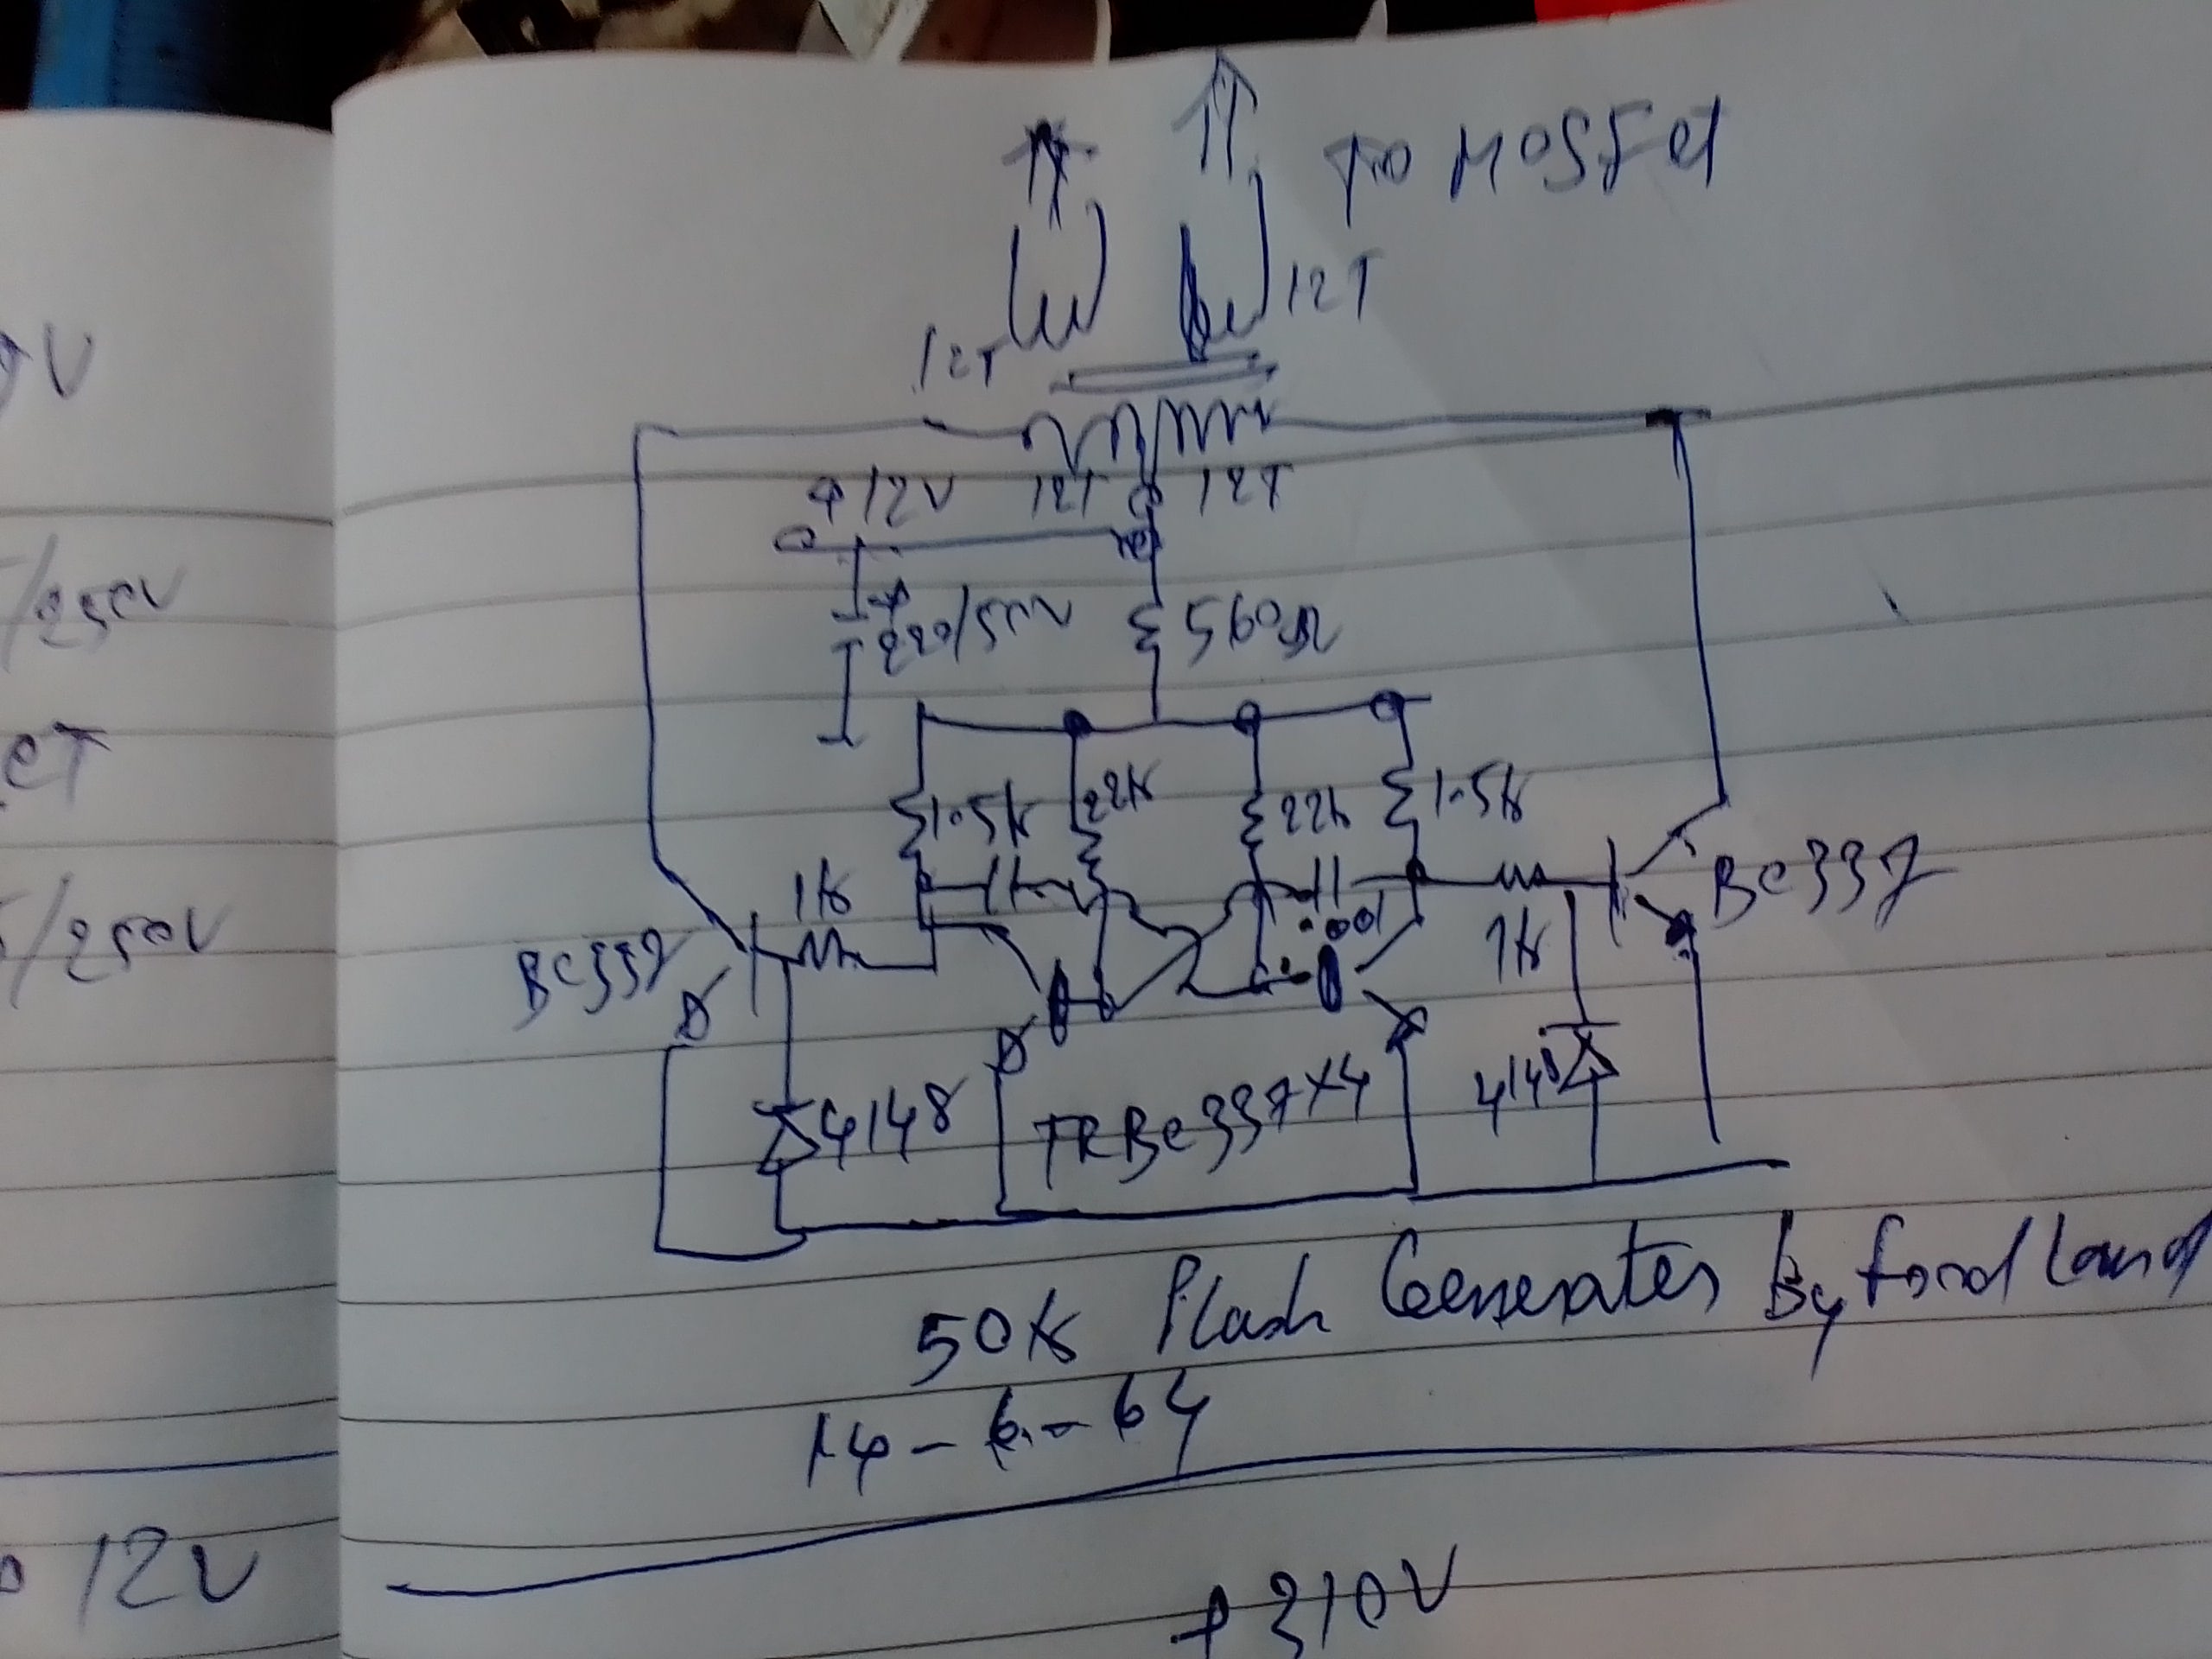 TO MOSFet
12T
12T
+12V 12T 12T
220/50V 560Ω
1.5k 22k 22k 1.5k
1k
.001
1k
BC337
BC337
4148
TRBC337X4
414
50k Plash Generater By ford Land
14-6-64
+310V
V
/250V
ET
/250V
12V